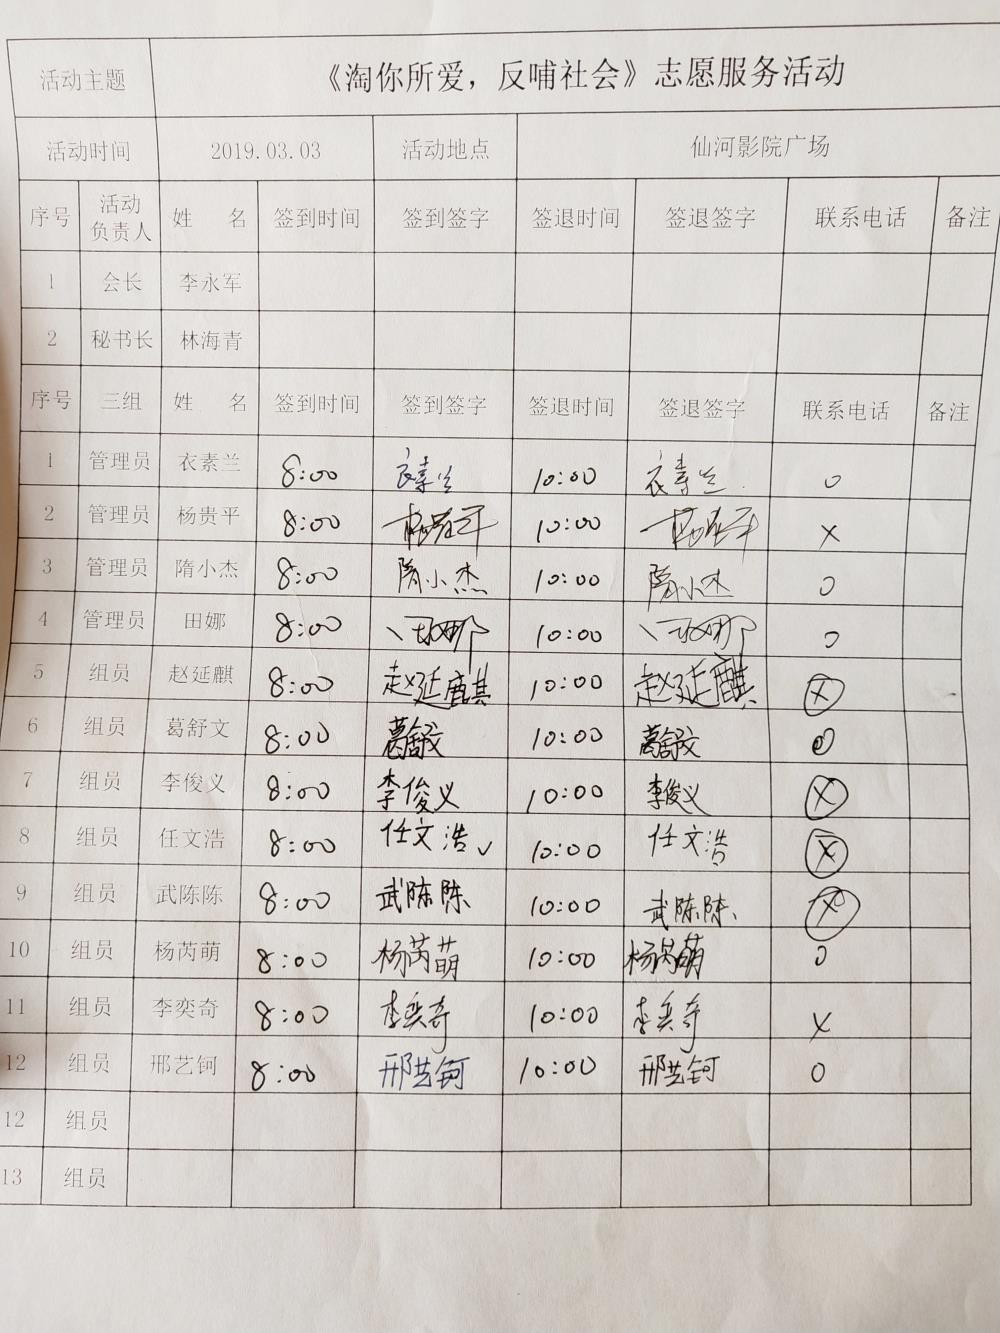 活动主题 《淘你所爱，反哺社会》志愿服务活动
活动时间 2019.03.03 活动地点 仙河影院广场
序号 活动负责人 姓 名 签到时间 签到签字 签退时间 签退签字 联系电话 备注
1 会长 李永军
2 秘书长 林海青
序号 三组 姓 名 签到时间 签到签字 签退时间 签退签字 联系电话 备注
1 管理员 衣素兰 8:00 衣素兰 10:00 衣素兰 o
2 管理员 杨贵平 8:00 杨贵平 10:00 杨贵平 x
3 管理员 隋小杰 8:00 隋小杰 10:00 隋小杰 o
4 管理员 田娜 8:00 田娜 10:00 田娜 o
5 组员 赵延麒 8:00 赵延麒 10:00 赵延麒 ⓧ
6 组员 葛舒文 8:00 葛舒文 10:00 葛舒文 o
7 组员 李俊义 8:00 李俊义 10:00 李俊义 ⓧ
8 组员 任文浩 8:00 任文浩✓ 10:00 任文浩 ⓧ
9 组员 武陈陈 8:00 武陈陈 10:00 武陈陈 ⓧ
10 组员 杨芮萌 8:00 杨芮萌 10:00 杨芮萌 o
11 组员 李奕奇 8:00 李奕奇 10:00 李奕奇 x
12 组员 邢艺钶 8:00 邢艺钶 10:00 邢艺钶 o
12 组员
13 组员